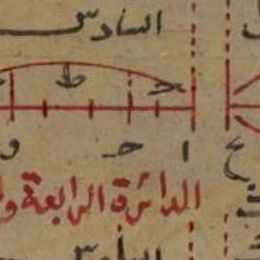 السادس
ط ح
ا ح و
ع
الدائرة الرابعة و
السادس